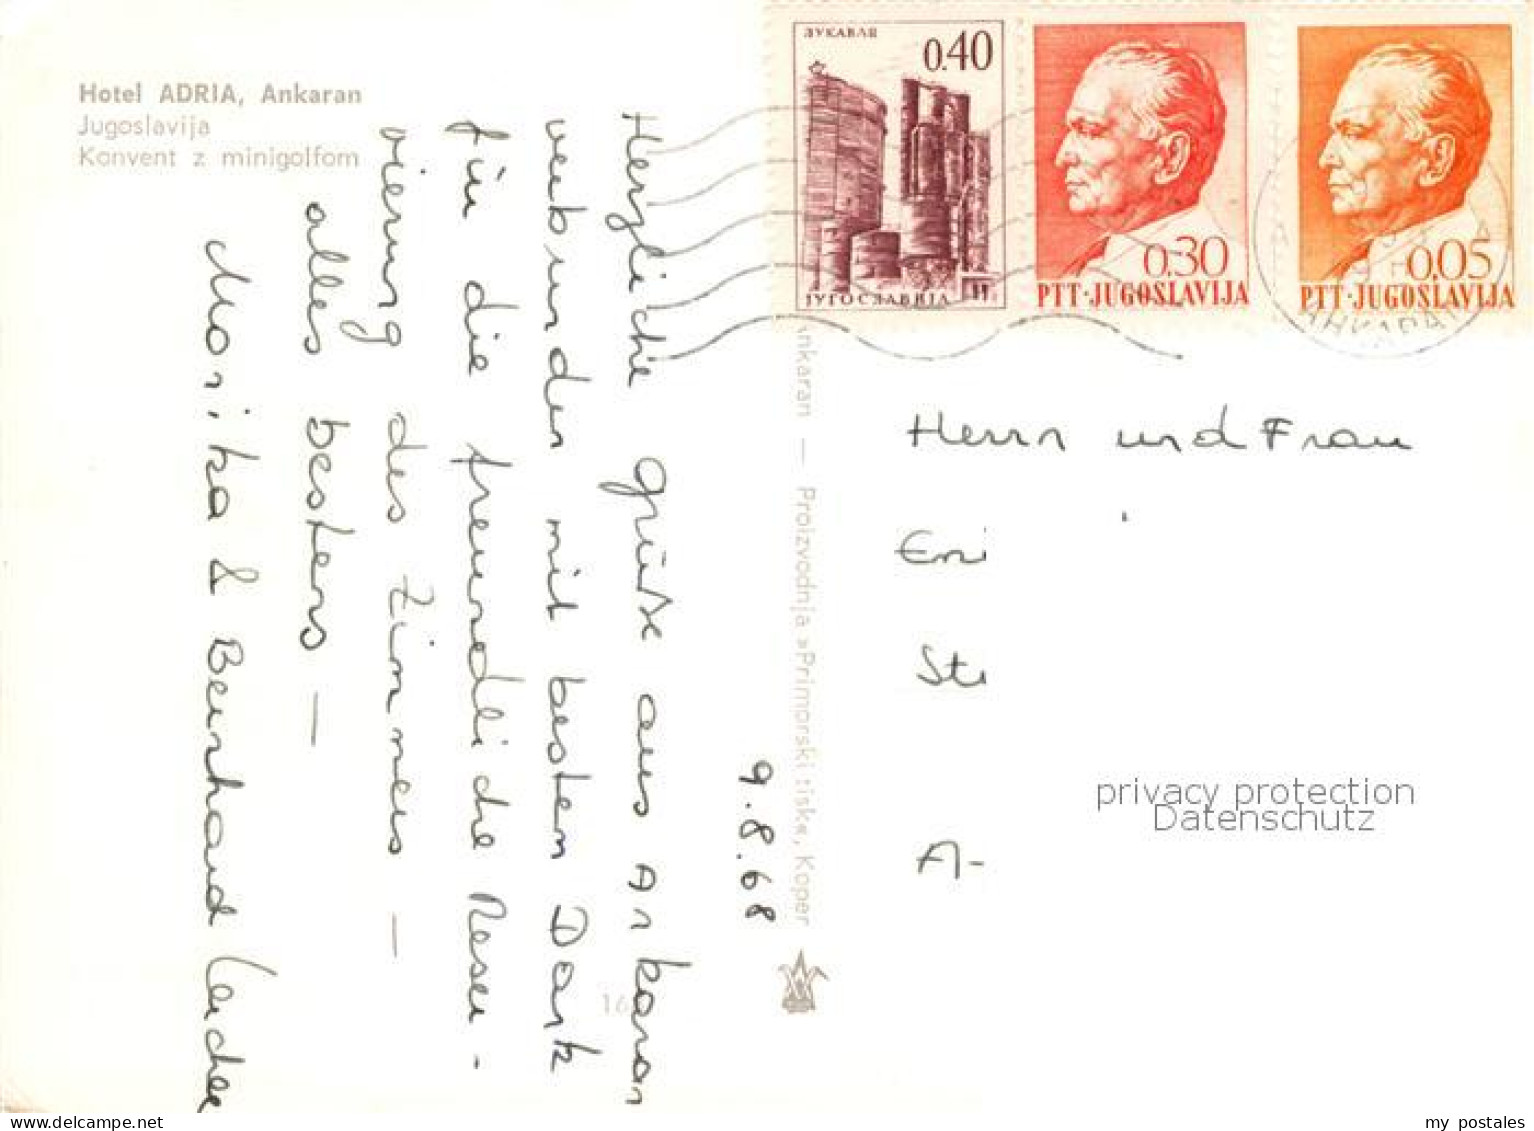 Hotel ADRIA, Ankaran
Jugoslavija
Konvent z minigolfom
9.8.68
Herzliche Grüße aus Ankaran
verbunden mit besten Dank
für die freundliche Reser-
vierung des Zimmers –
alles bestens –
Marika & Bernhard
nkaran — Proizvodnja »Primorski tisk«, Koper
16
ЛУКАВАЦ
0.40
ЈУГОСЛАВИЈА
0.30
PTT·JUGOSLAVIJA
0.05
PTT·JUGOSLAVIJA
ANKARAN
Herrn und Frau
Emi
Str
A-
privacy protection
Datenschutz
delcampe.net
my_postales